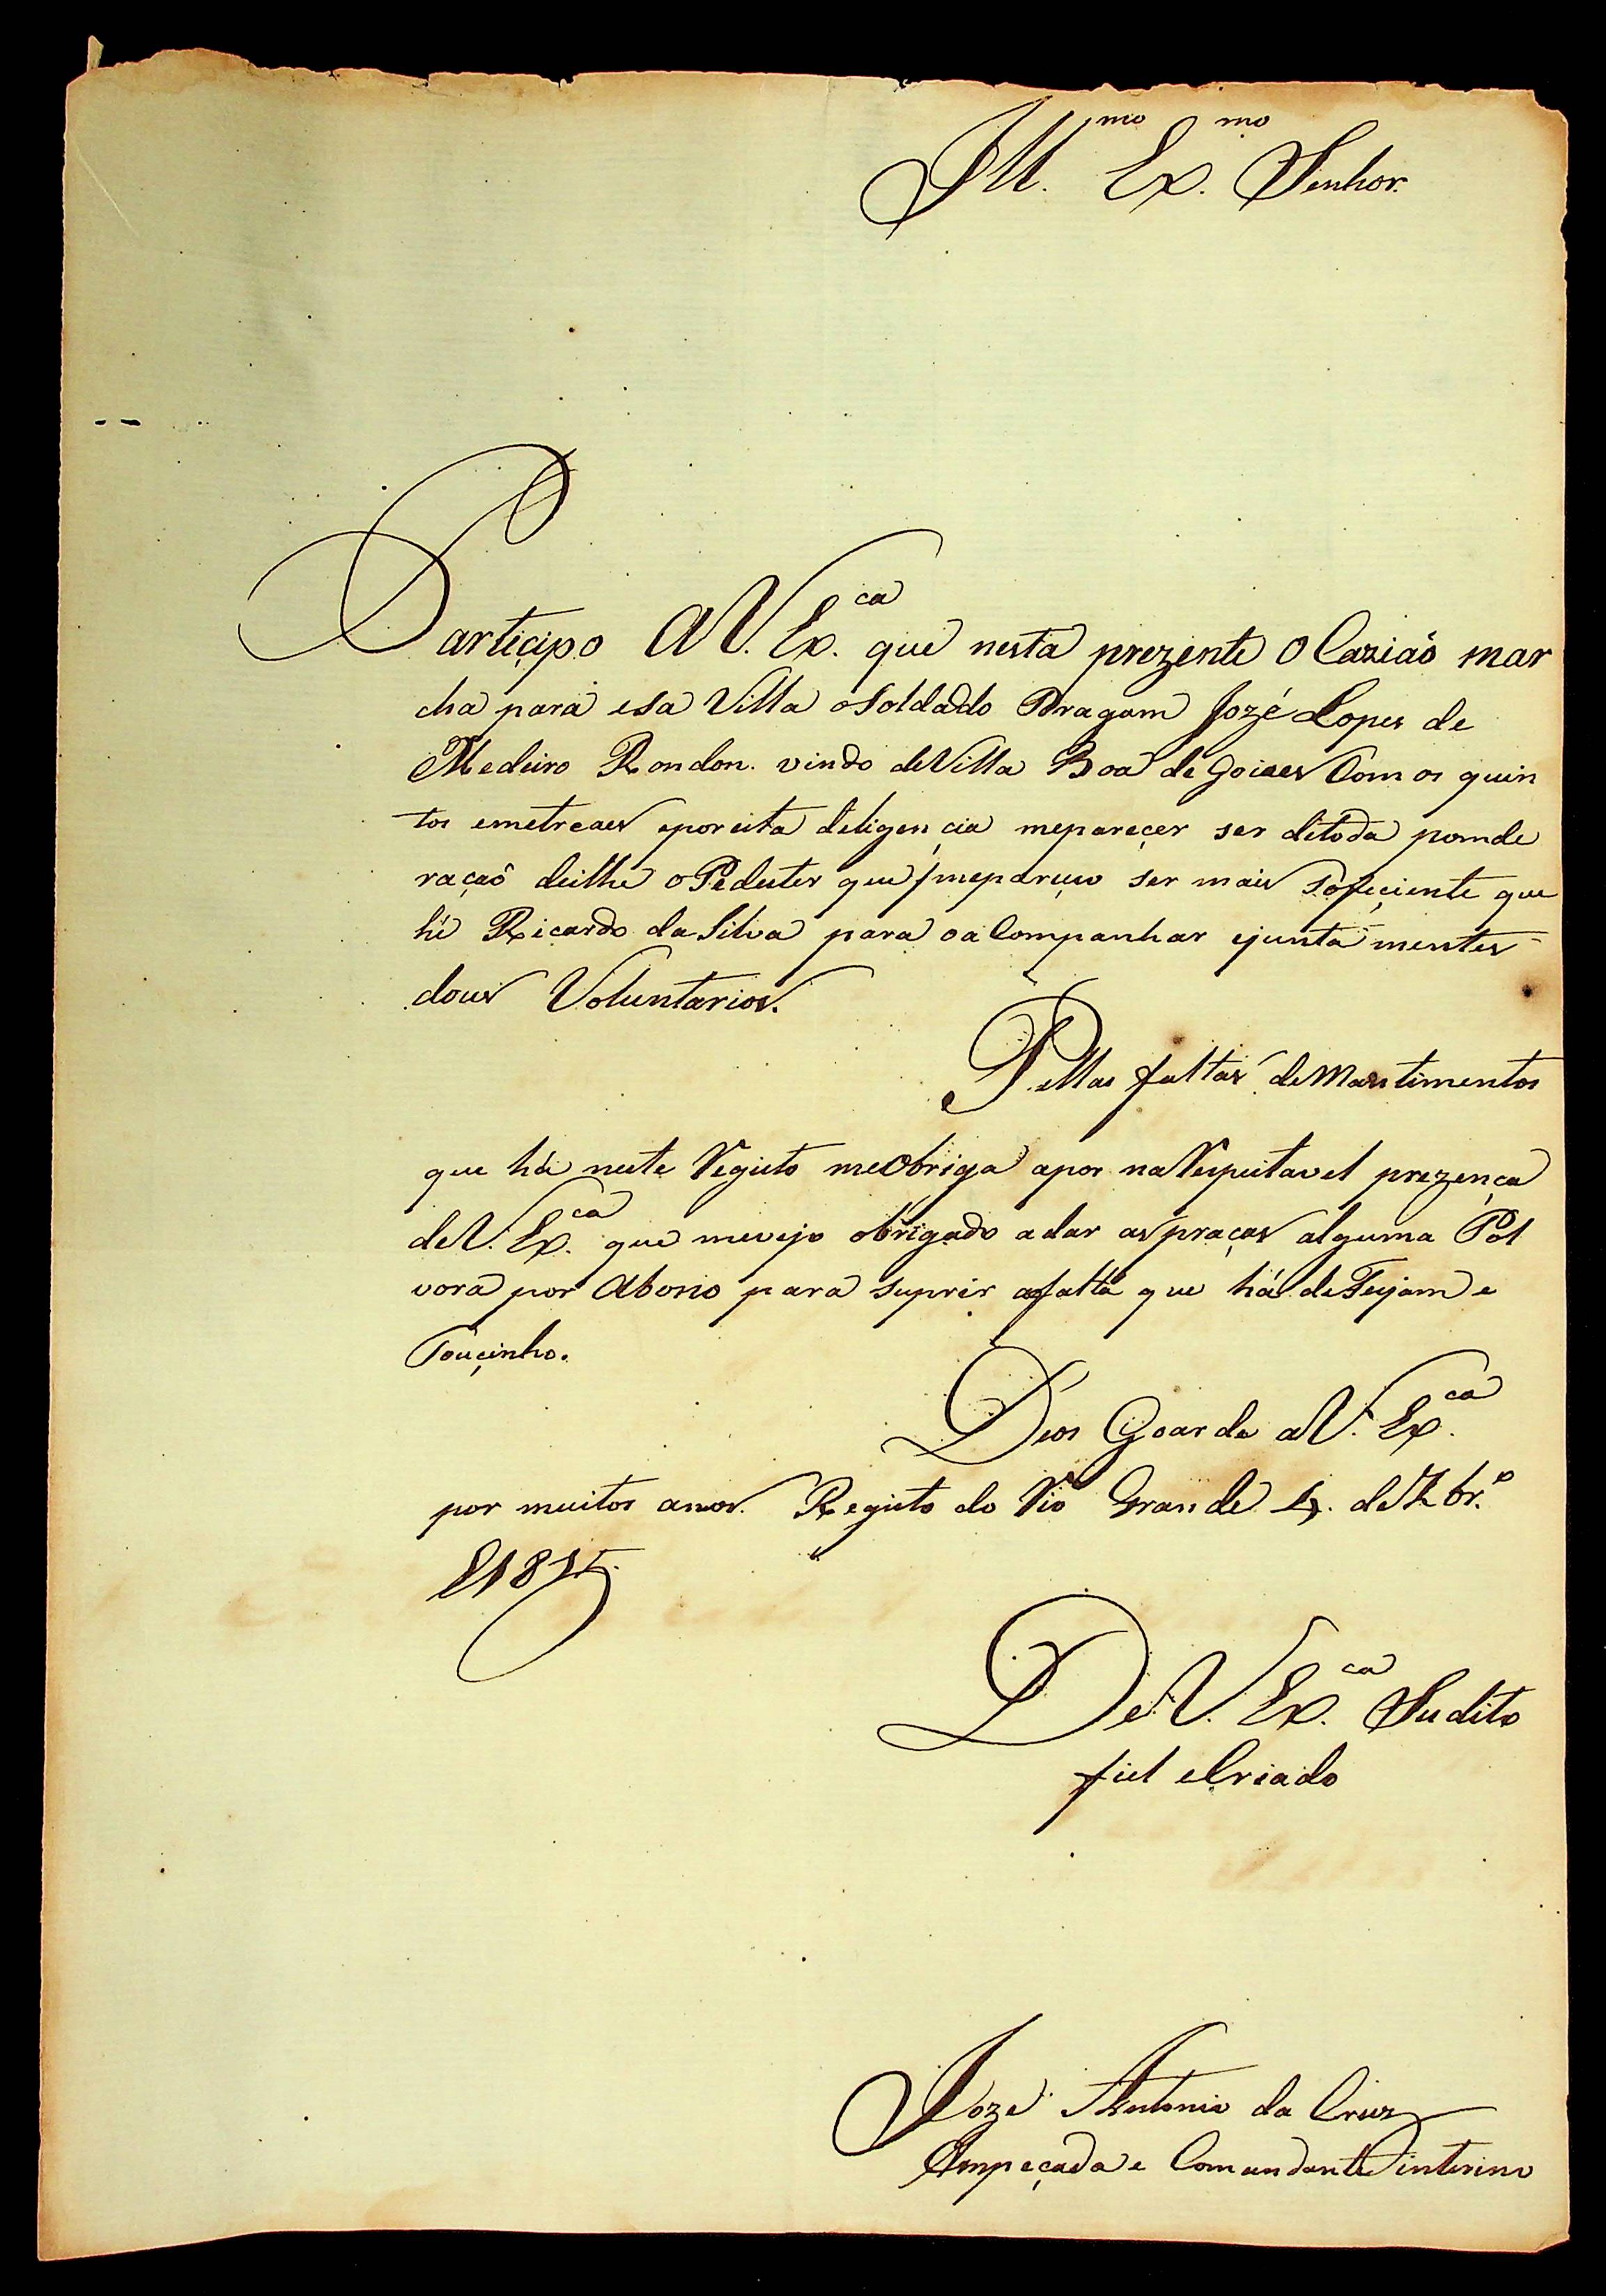 Ill.mo Ex.mo Senhor.
Partecipo A V. Ex.ca que nesta prezente O Caziaõ mar
cha para esa Villa oSoldado Dragam Jozé Lopes de
Medeiro Rondon. vindo deVilla Boa de Goiaes Com os quin
tos emetreaes eporesta deligençia mepareçer ser detoda pomde
raçaõ deilhe oPedester que mepareçeo ser mais Sofeçiente que
hé Ricardo daSilva para oaCompanhar ejunta mentes
dous Voluntarios.
Pellas faltas deMantimentos
que há neste Registo meObriga apor naRespeitavel prezença
deV. Ex.ca que mevejo obrigado adar aspraças alguma Pol
vora por Abono para suprir afalta que há deFeijam e
Touçinho.
Deos Goarde aV. Ex.ca
por muitos anos. Registo do Rio Grande 4. de7br.o
E1815.
DeV. Ex.ca Sudito
fiel eCriado
Joze Antonio da Cruz
Ampeçada e Comandante interino